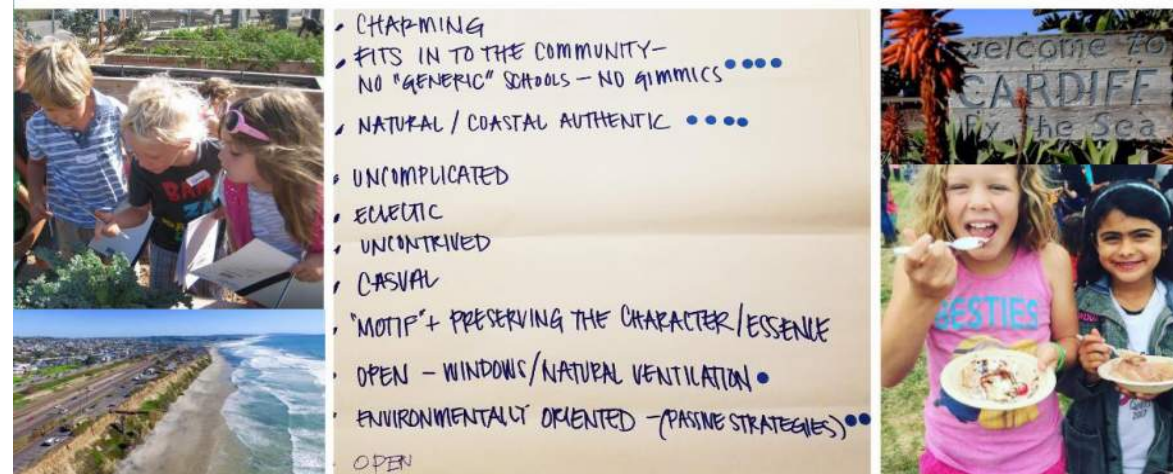 • CHARMING
• FITS IN TO THE COMMUNITY—
NO "GENERIC" SCHOOLS — NO GIMMICS
• NATURAL / COASTAL AUTHENTIC
• UNCOMPLICATED
• ECLECTIC
• UNCONTRIVED
• CASUAL
• "MOTIF" + PRESERVING THE CHARACTER/ESSENCE
• OPEN — WINDOWS/NATURAL VENTILATION
• ENVIRONMENTALLY ORIENTED — (PASSIVE STRATEGIES)
OPEN
welcome to
CARDIFF
By the Sea
BESTIES